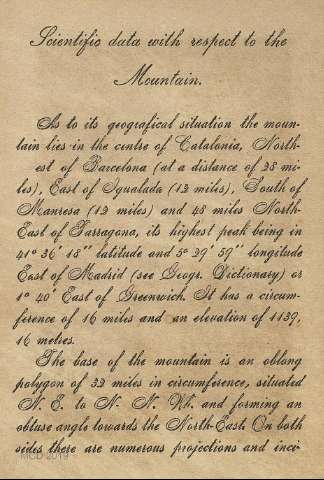 Scientific data with respect to the
Mountain.
As to its geografical situation the moun-
tain lies in the centre of Catalonia, North-
est of Barcelona (at a distance of 28 mi-
les), East of Igualada (12 miles), South of
Manresa (12 miles) and 48 miles North-
East of Tarragona, its highest peak being in
41° 36' 18" latitude and 5° 29' 59" longitude
East of Madrid (see Geogr. Dictionary) or
1° 40' East of Greenwich. It has a circum-
ference of 16 miles and an elevation of 1139,
16 metres.
The base of the mountain is an oblong
polygon of 32 miles in circumference, situated
N. E. to N. N. Wt. and forming an
obtuse angle towards the North-East. On both
sides there are numerous projections and inci-
MCD 2019